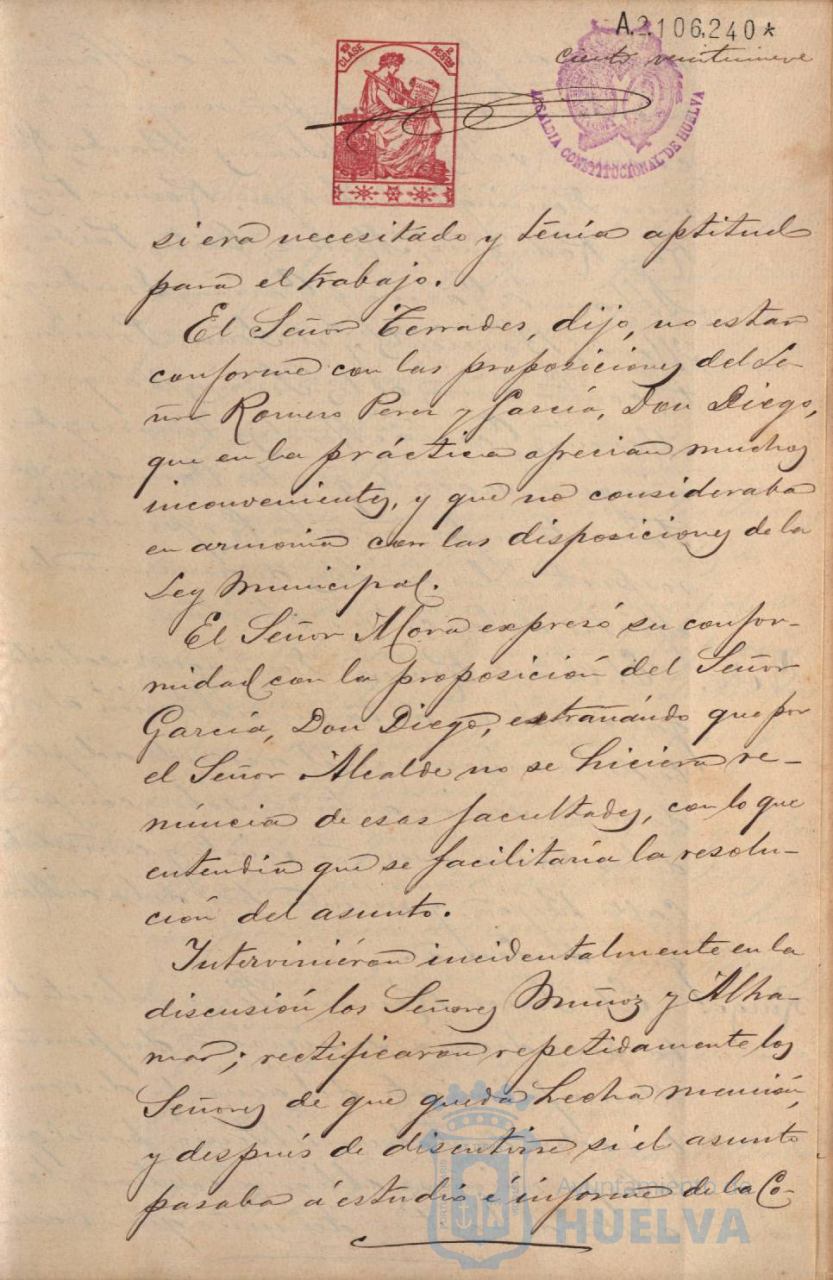 A.2.106.240*
ciento veintinueve
CLASE
PESETAS
ALCALDIA CONSTITUCIONAL DE HUELVA
si era necesitado y tenía aptitud
para el trabajo.
El Señor Terrades, dijo, no estar
conforme con las proposiciones del Se-
ñor Romero Perez y García, Don Diego,
que en la práctica ofrecian muchos
inconvenientes, y que no consideraba
en armonia con las disposiciones de la
Ley Municipal.
El Señor Mora expresó su confor-
midad con la proposición del Señor
García, Don Diego, extrañando que por
el Señor Alcalde no se hiciera re-
nuncia de esas facultades, con lo que
entendia que se facilitaría la resolu-
ción del asunto.
Intervinieron incidentalmente en la
discusión los Señores Muñoz y Alha-
mar; rectificaron repetidamente los
Señores de que queda hecha mención,
y después de discutirse si el asunto
pasaba á estudio é informe de la Co-
Ayuntamiento de
HUELVA